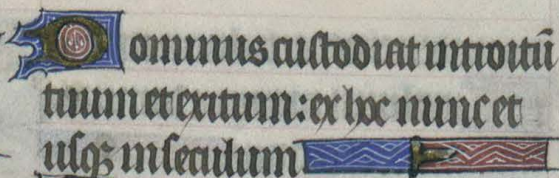 Dominus custodiat introitū
tuum et exitum: ex hoc nunc et
usqꝫ in seculum